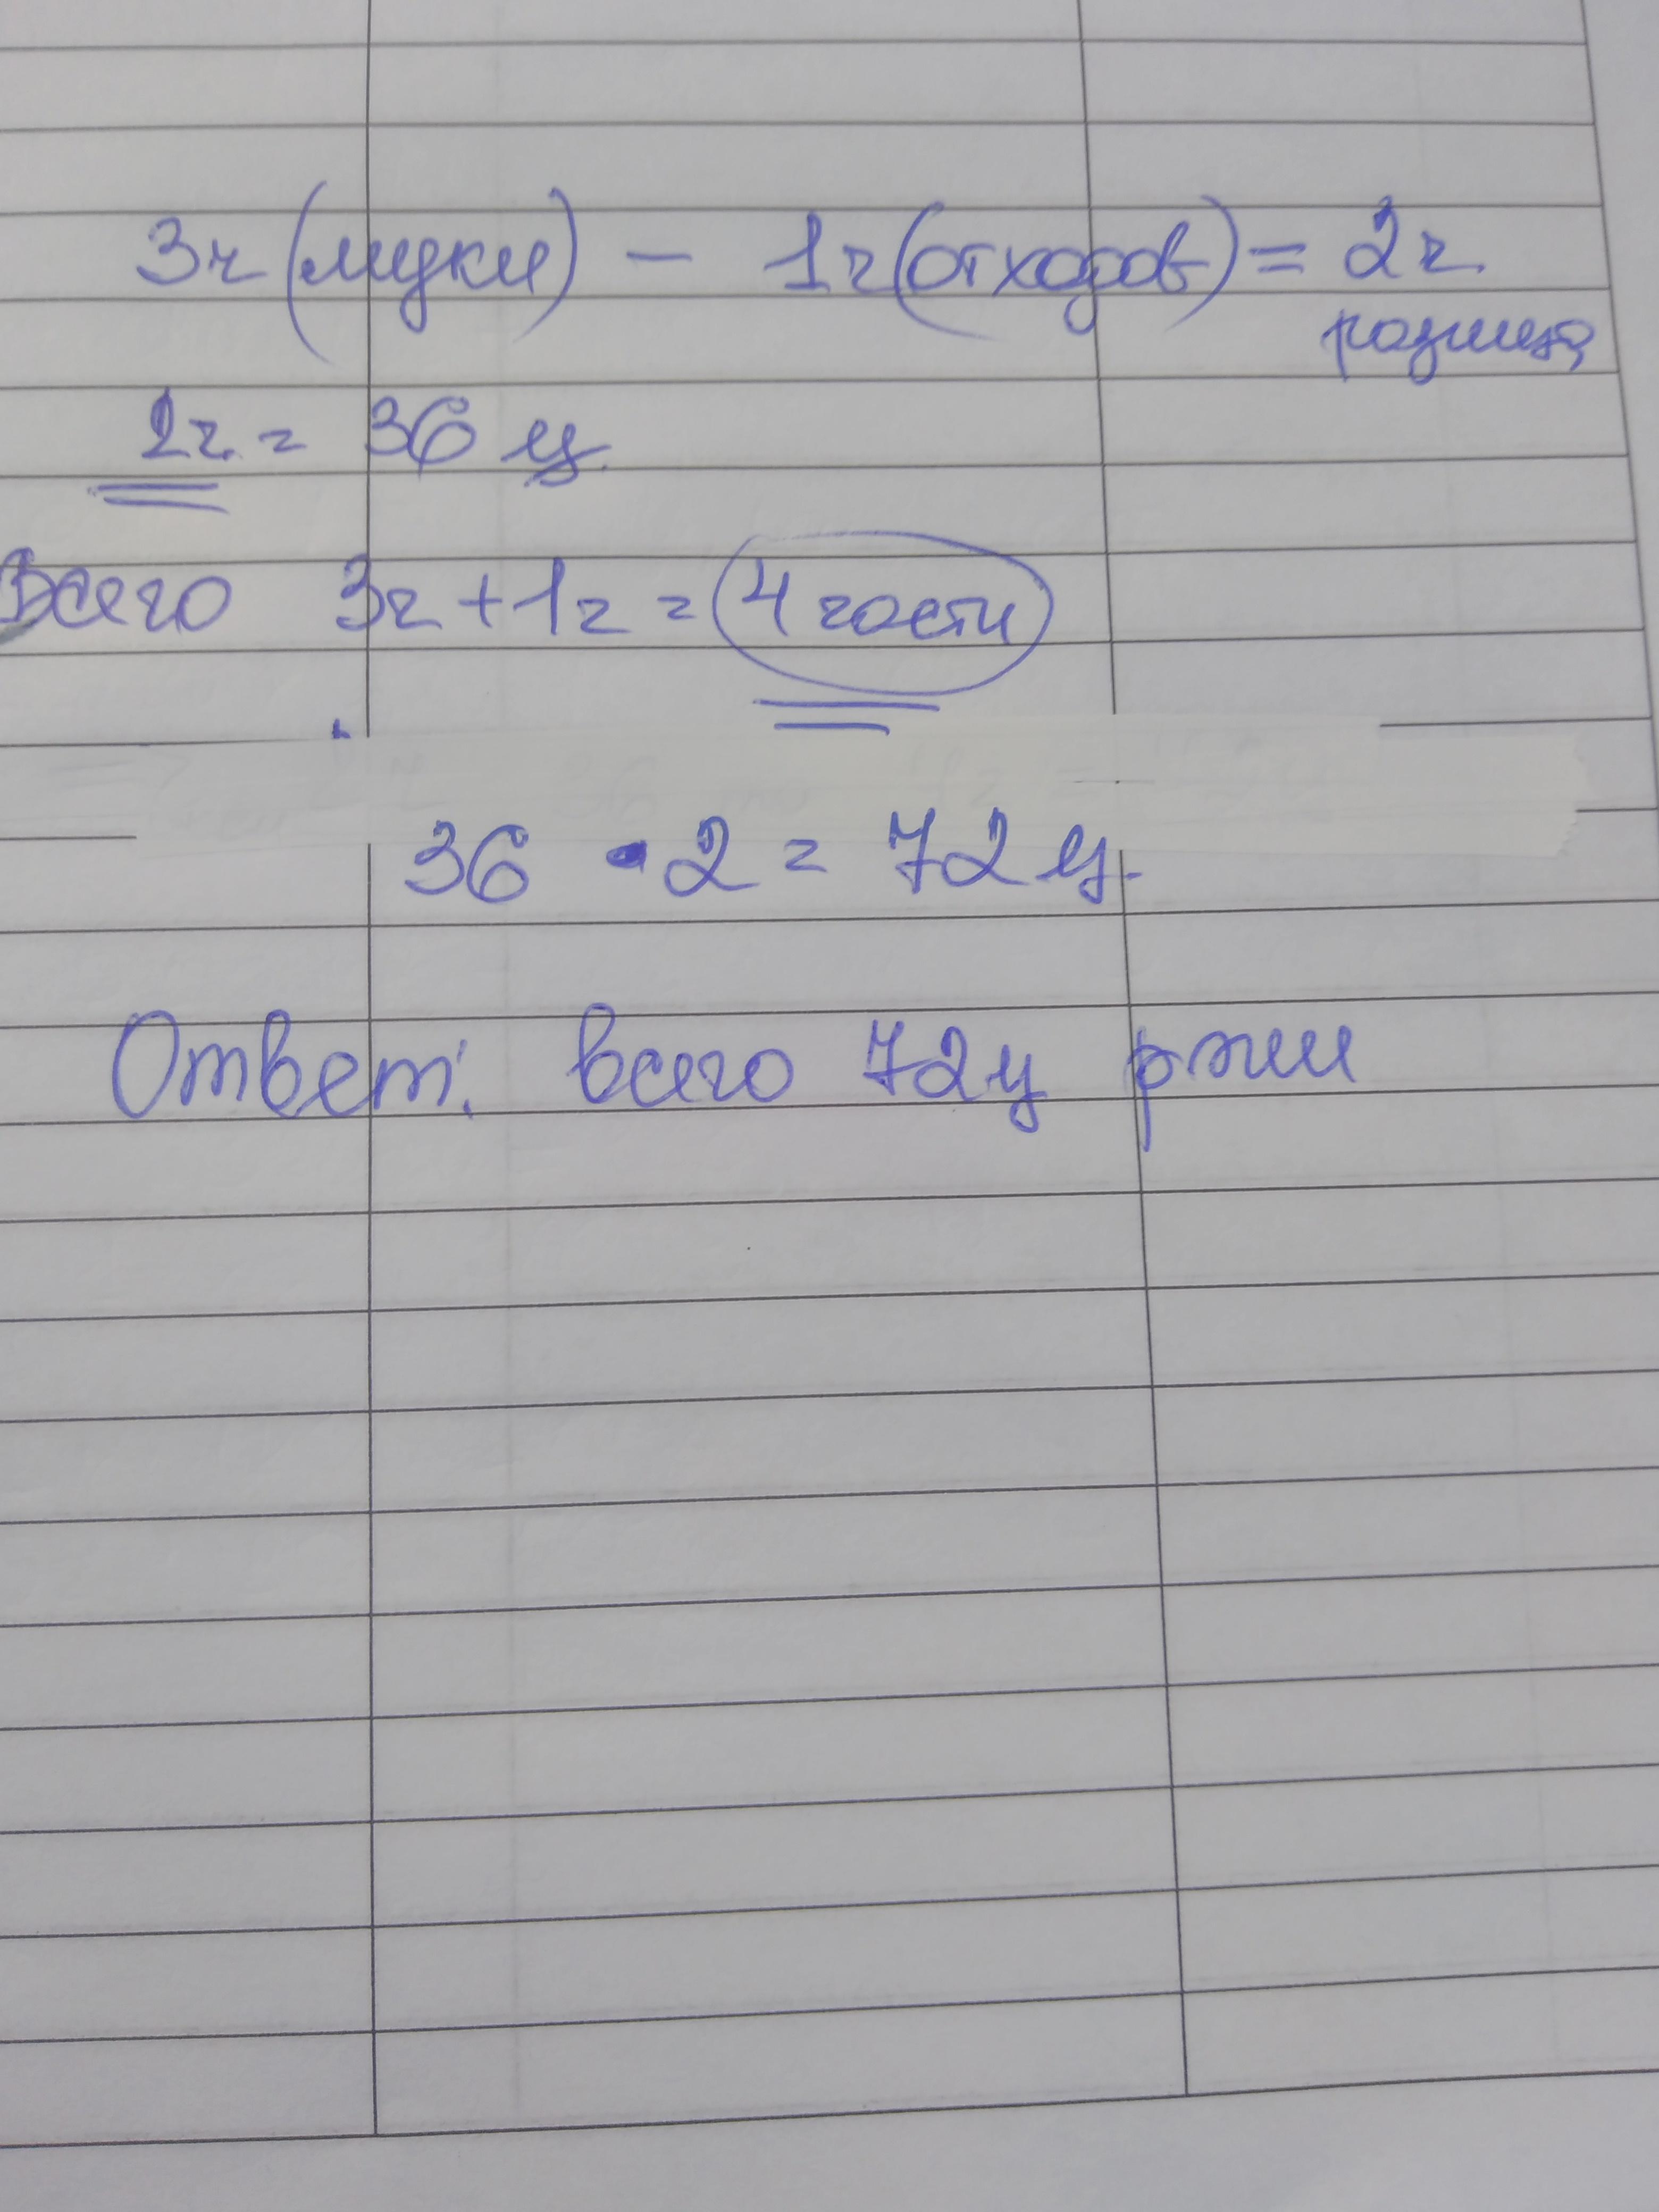 3ч (муки) - 1ч (отходов) = 2ч.
разница
2ч. = 36 ц.
Всего 3ч + 1ч = 4 части
36 · 2 = 72 ц.
Ответ: всего 72 ц ржи